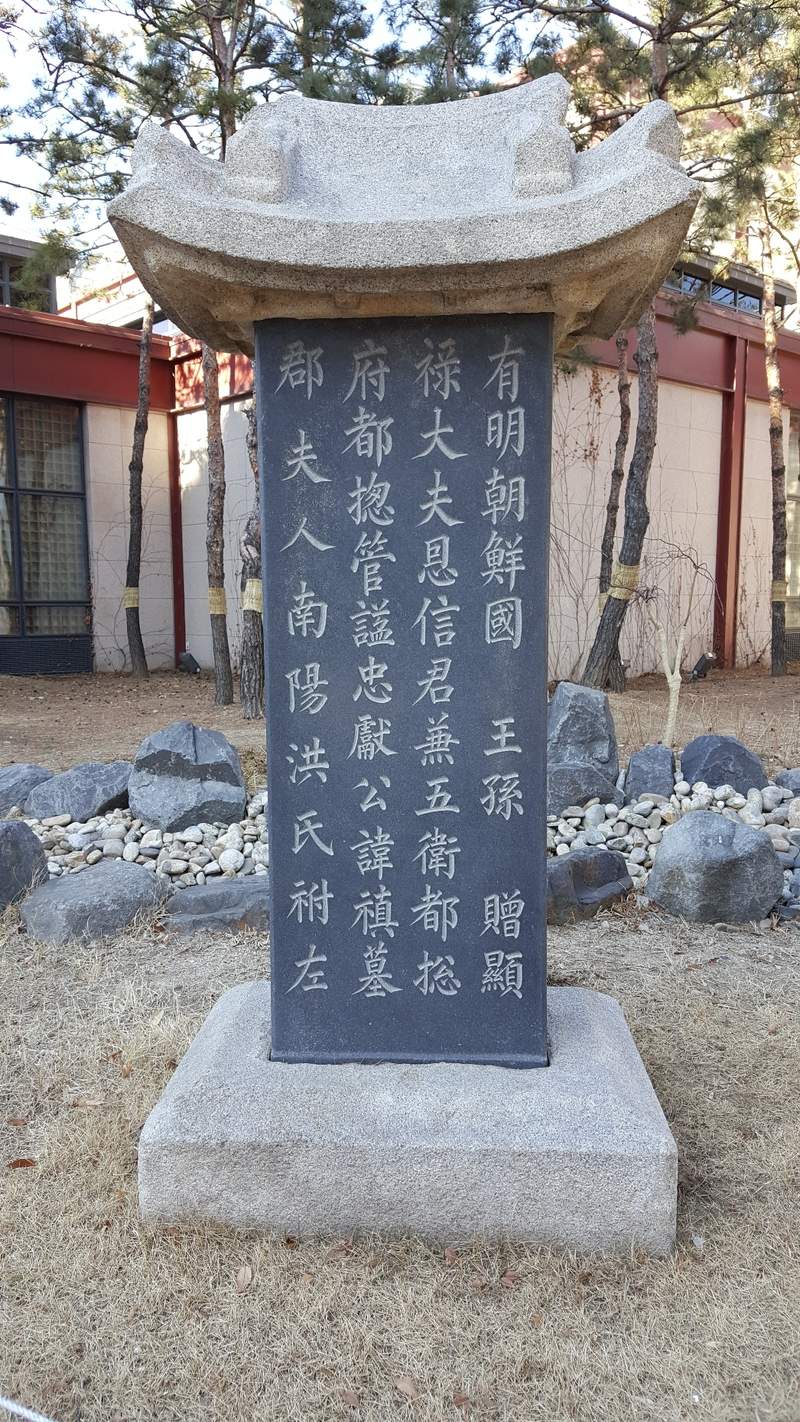 有明朝鮮國 王孫 贈顯
禄大夫恩信君兼五衛都捴
府都揔管諡忠獻公諱禛墓
郡夫人南陽洪氏祔左